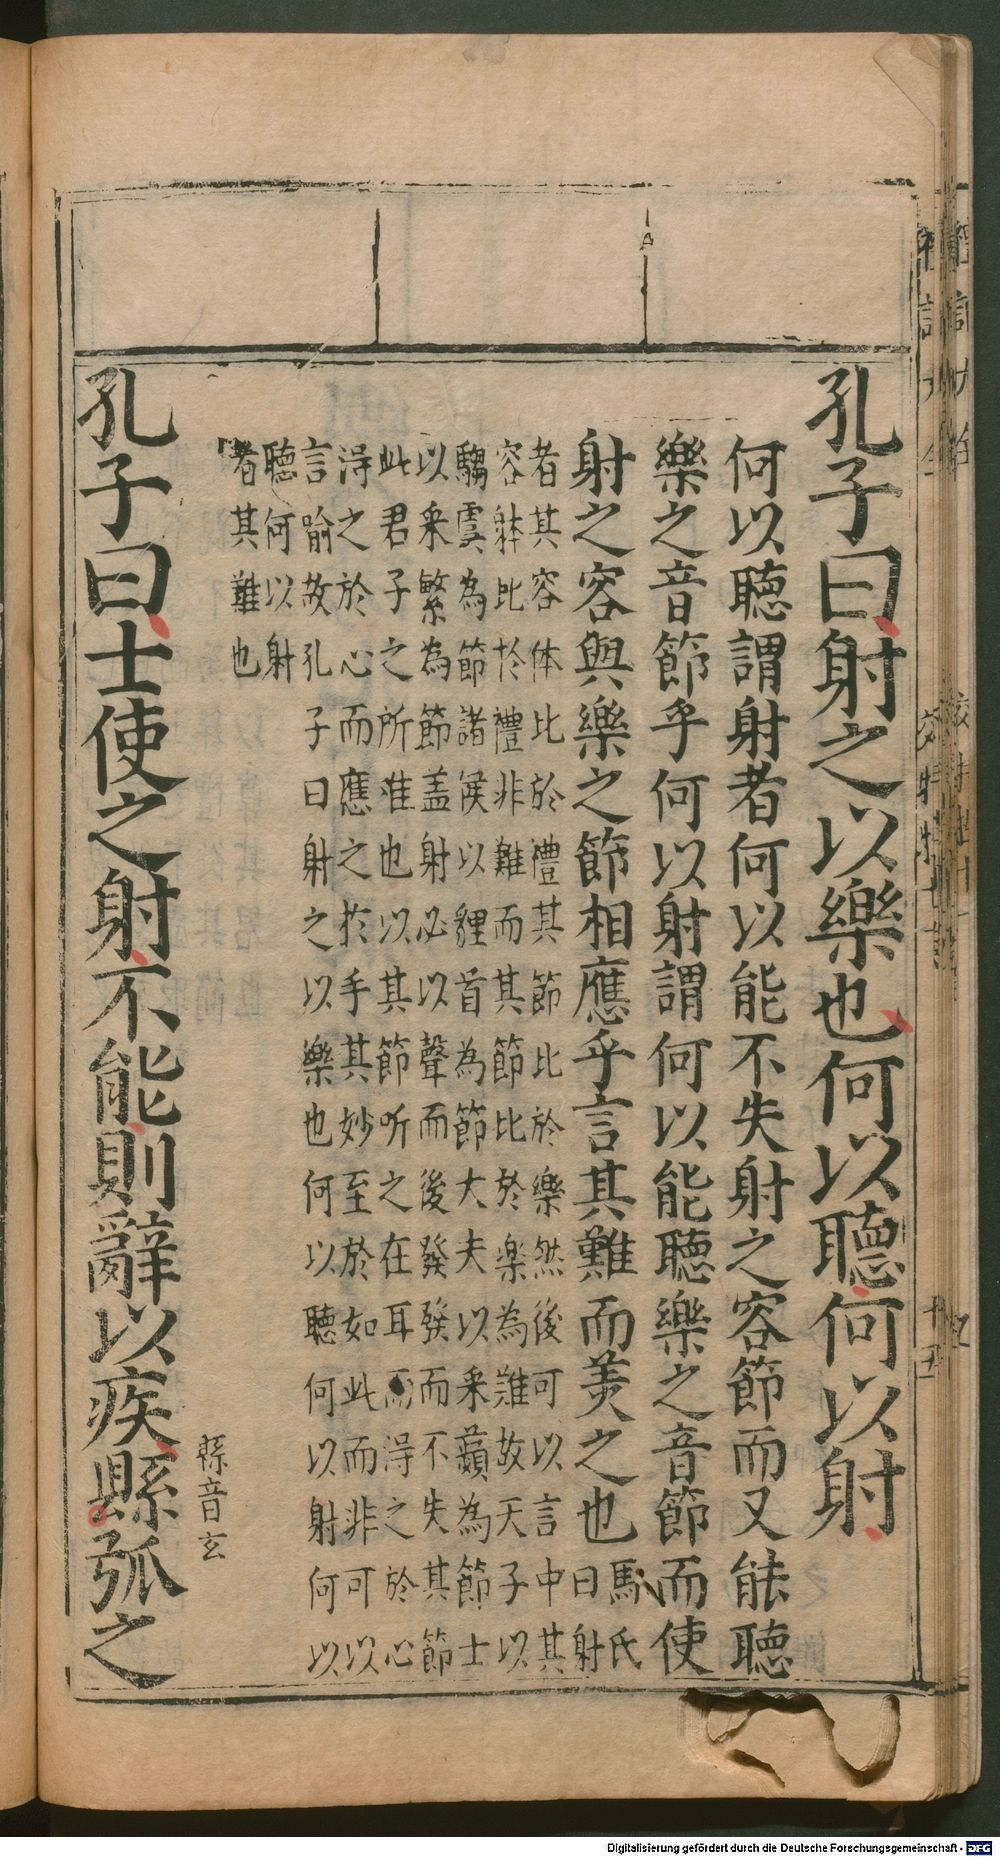 孔子曰射之以樂也何以聽何以射
何以聽謂射者何以能不失射之容節而又能聽
樂之音節乎何以射謂何以能聽樂之音節而使
射之容與樂之節相應乎言其難而美之也
馬氏
曰射
者其容体比於禮其節比於樂然後可以言中其
容躰比於禮非難而其節比於楽為難故天子以
騶虞為節諸侯以貍首為節大夫以采蘋為節士
以采繁為節盖射必以聲而後發發而不失其節
此君子之所难也以其節听之在耳而淂之於心
淂之於心而應之於手其妙至於如此而非可以
言喻故孔子曰射之以樂也何以聽何以射何以
聽何以射
者其難也
縣音玄
孔子曰士使之射不能則辭以疾縣弧之
Digitalisierung gefördert durch die Deutsche Forschungsgemeinschaft - DFG